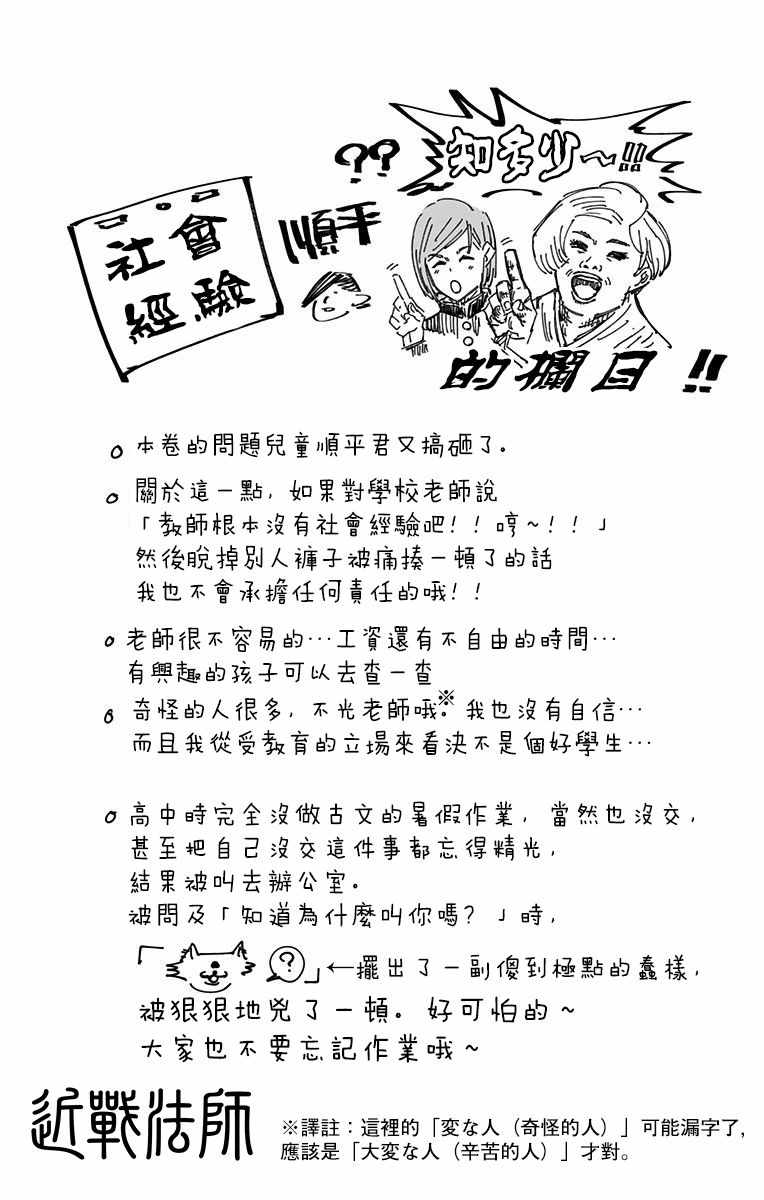 知多少～!!!
??
社會
經驗
順平
的欄目!!
本卷的問題兒童順平君又搞砸了。
關於這一點, 如果對學校老師說
「教師根本沒有社會經驗吧!! 哼~!!」
然後脫掉別人褲子被痛揍一頓了的話
我也不會承擔任何責任的哦!!
老師很不容易的…工資還有不自由的時間…
有興趣的孩子可以去查一查
奇怪的人很多, 不光老師哦※。我也沒有自信…
而且我從受教育的立場來看決不是個好學生…
高中時完全沒做古文的暑假作業, 當然也沒交,
甚至把自己沒交這件事都忘得精光,
結果被叫去辦公室。
被問及「知道為什麼叫你嗎? 」時,
「?」←擺出了一副傻到極點的蠢樣,
被狠狠地兇了一頓。好可怕的~
大家也不要忘記作業哦~
近戰法師
※譯註：這裡的「変な人（奇怪的人）」可能漏字了,
應該是「大変な人（辛苦的人）」才對。